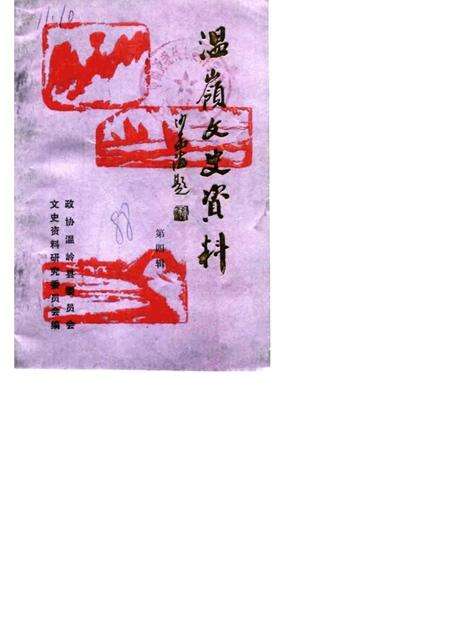 温嶺文史資料
沙孟海題
第四辑
政协温岭县委员会
文史资料研究委员会编
88